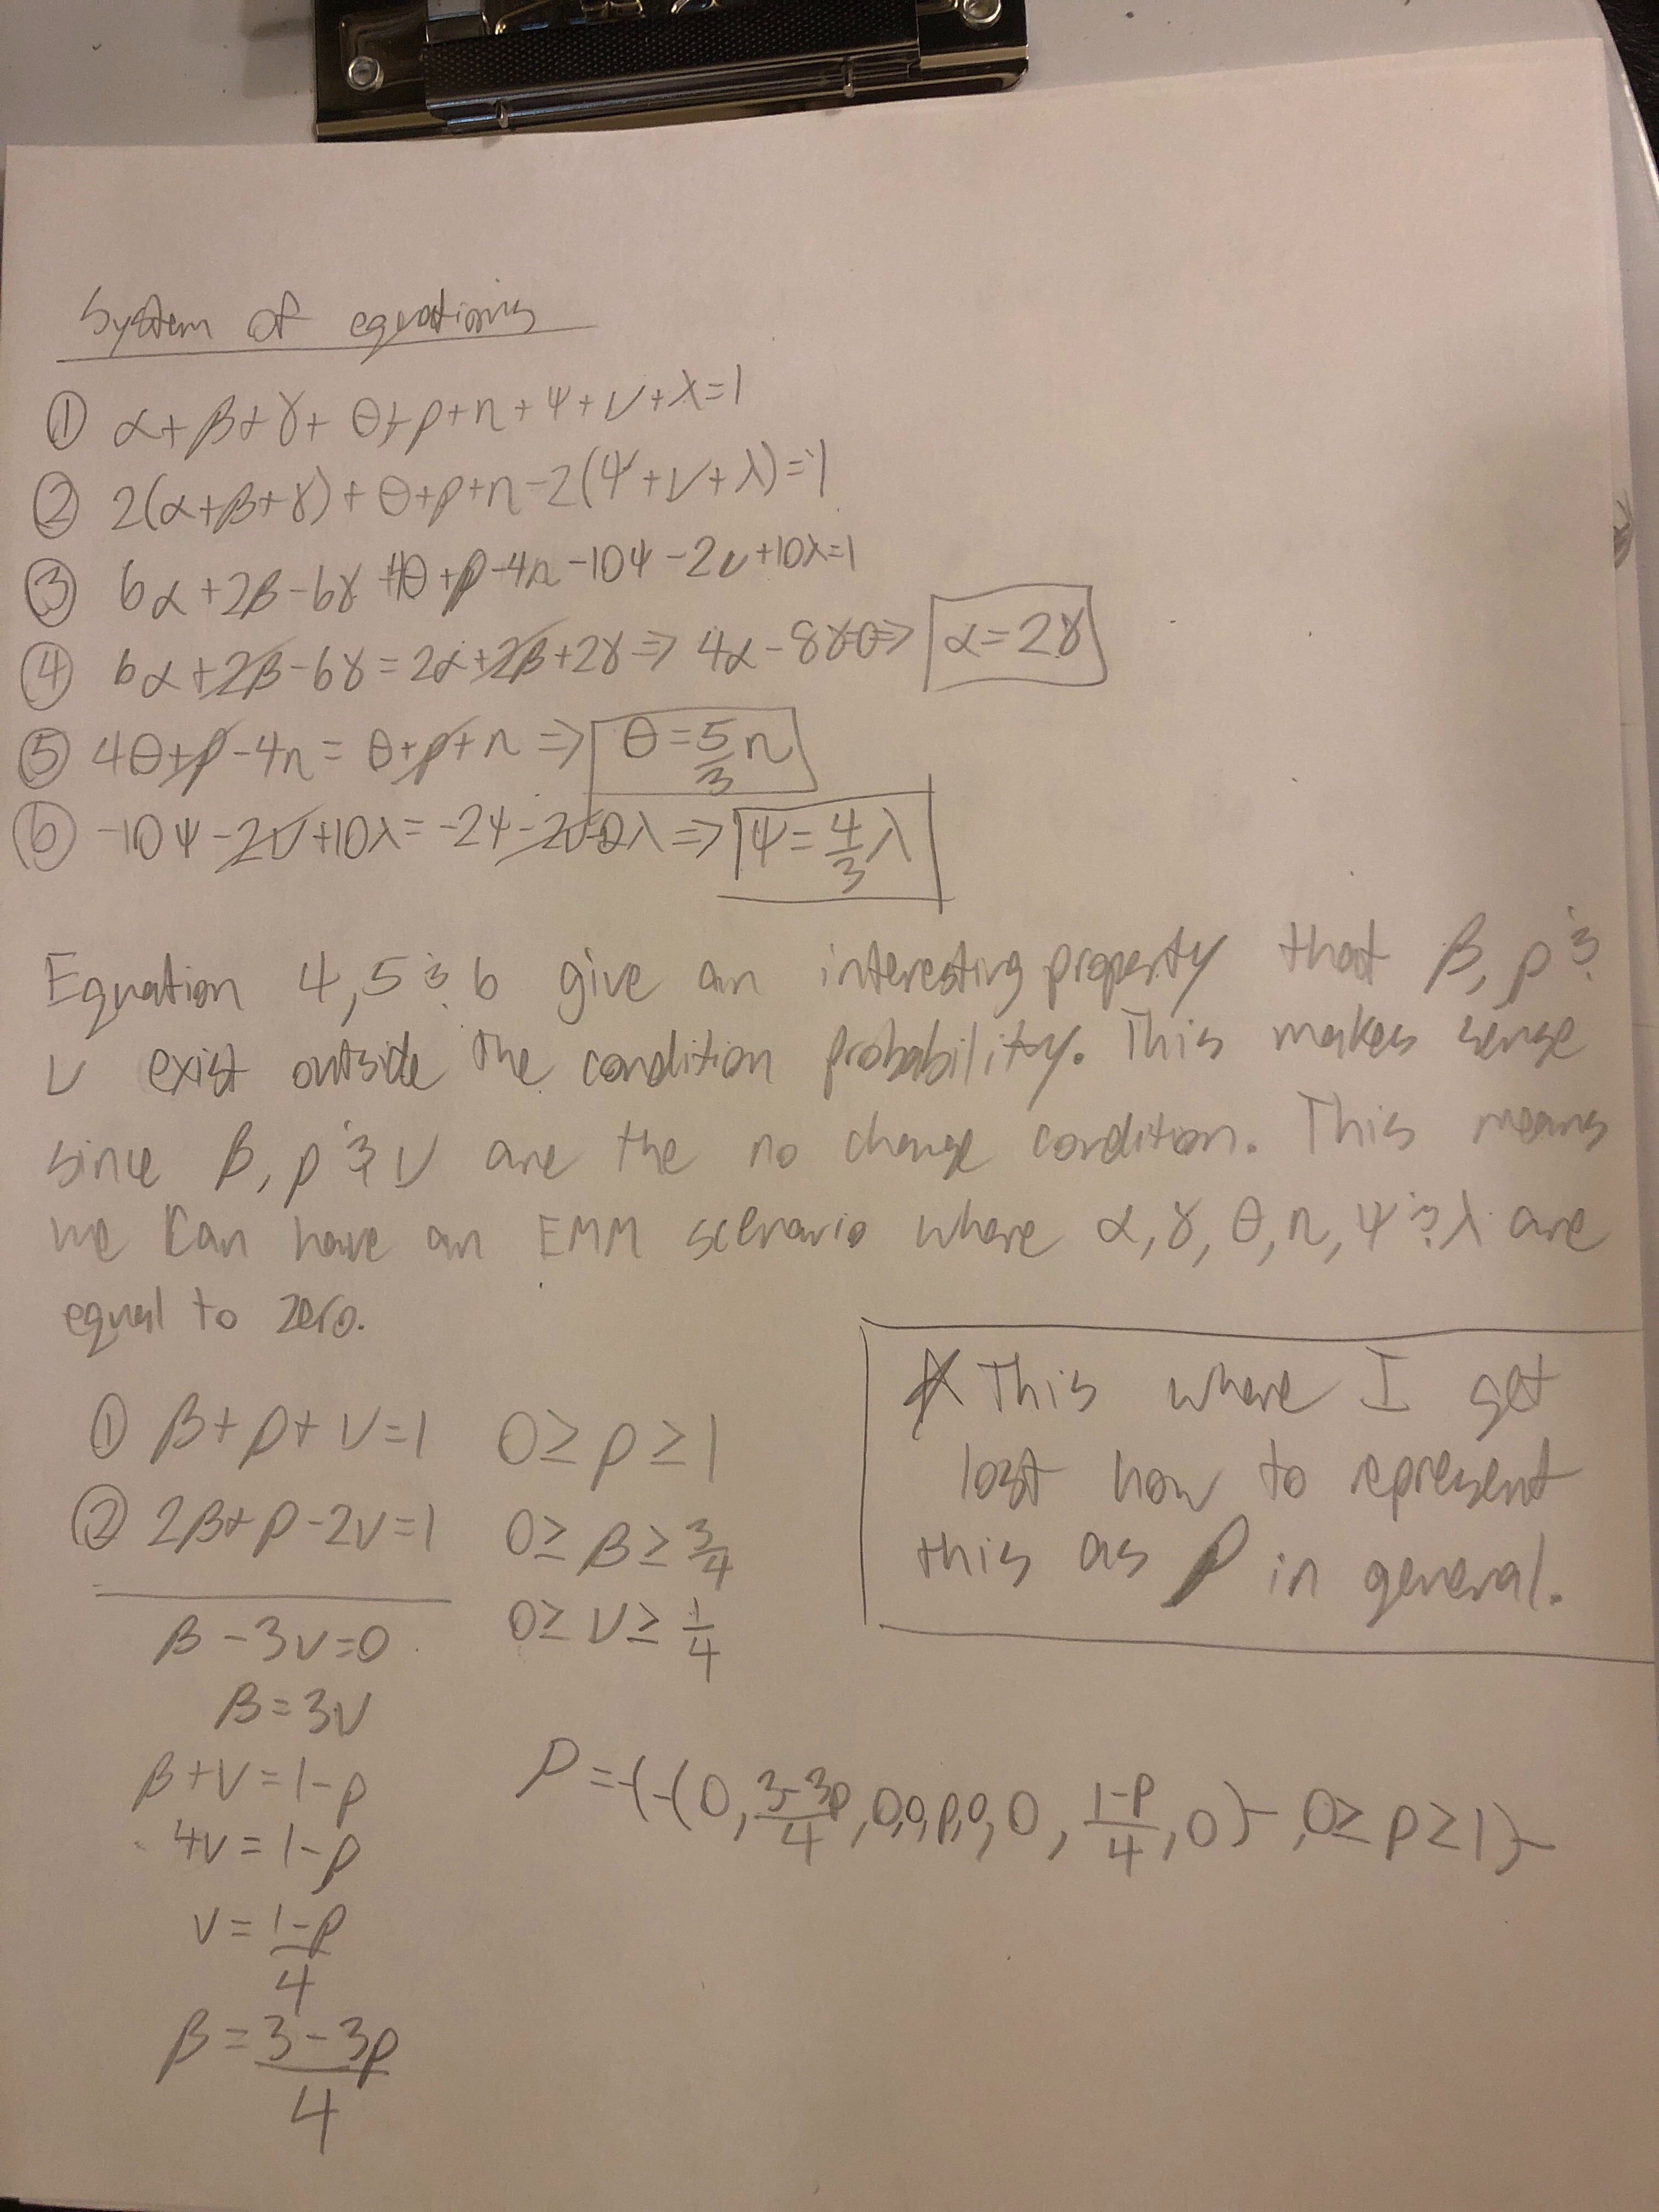 System of equations
① α+β+γ+θ+ρ+n+ψ+ν+λ=1
② 2(α+β+γ)+θ+ρ+n-2(ψ+ν+λ)=1
③ 6α+2β-6γ+4θ+ρ-4n-10ψ-2ν+10λ=1
④ 6α+2β-6γ=2α+2β+2γ⇒ 4α-8γ=0⇒ α=2γ
⑤ 4θ+ρ-4n=θ+ρ+n ⇒ θ=5/3n
⑥ -10ψ-2ν+10λ=-2ψ-2ν-2λ⇒ ψ=4/3λ
Equation 4,5 & 6 give an interesting property that β, ρ &
ν exist outside the condition probability. This makes sense
since β, ρ & ν are the no change condition. This means
we can have an EMM scenario where α,γ,θ,n,ψ & λ are
equal to zero.
① β+ρ+ν=1 0≥ρ≥1
② 2β+ρ-2ν=1 0≥β≥3/4
0≥ν≥1/4
β-3ν=0
β=3ν
β+ν=1-ρ
4ν=1-ρ
ν=1-ρ/4
β=3-3ρ/4
* This where I get
lost how to represent
this as P in general.
P={{0,3-3ρ/4,0,0,ρ,0,0,1-ρ/4,0},0≥ρ≥1}